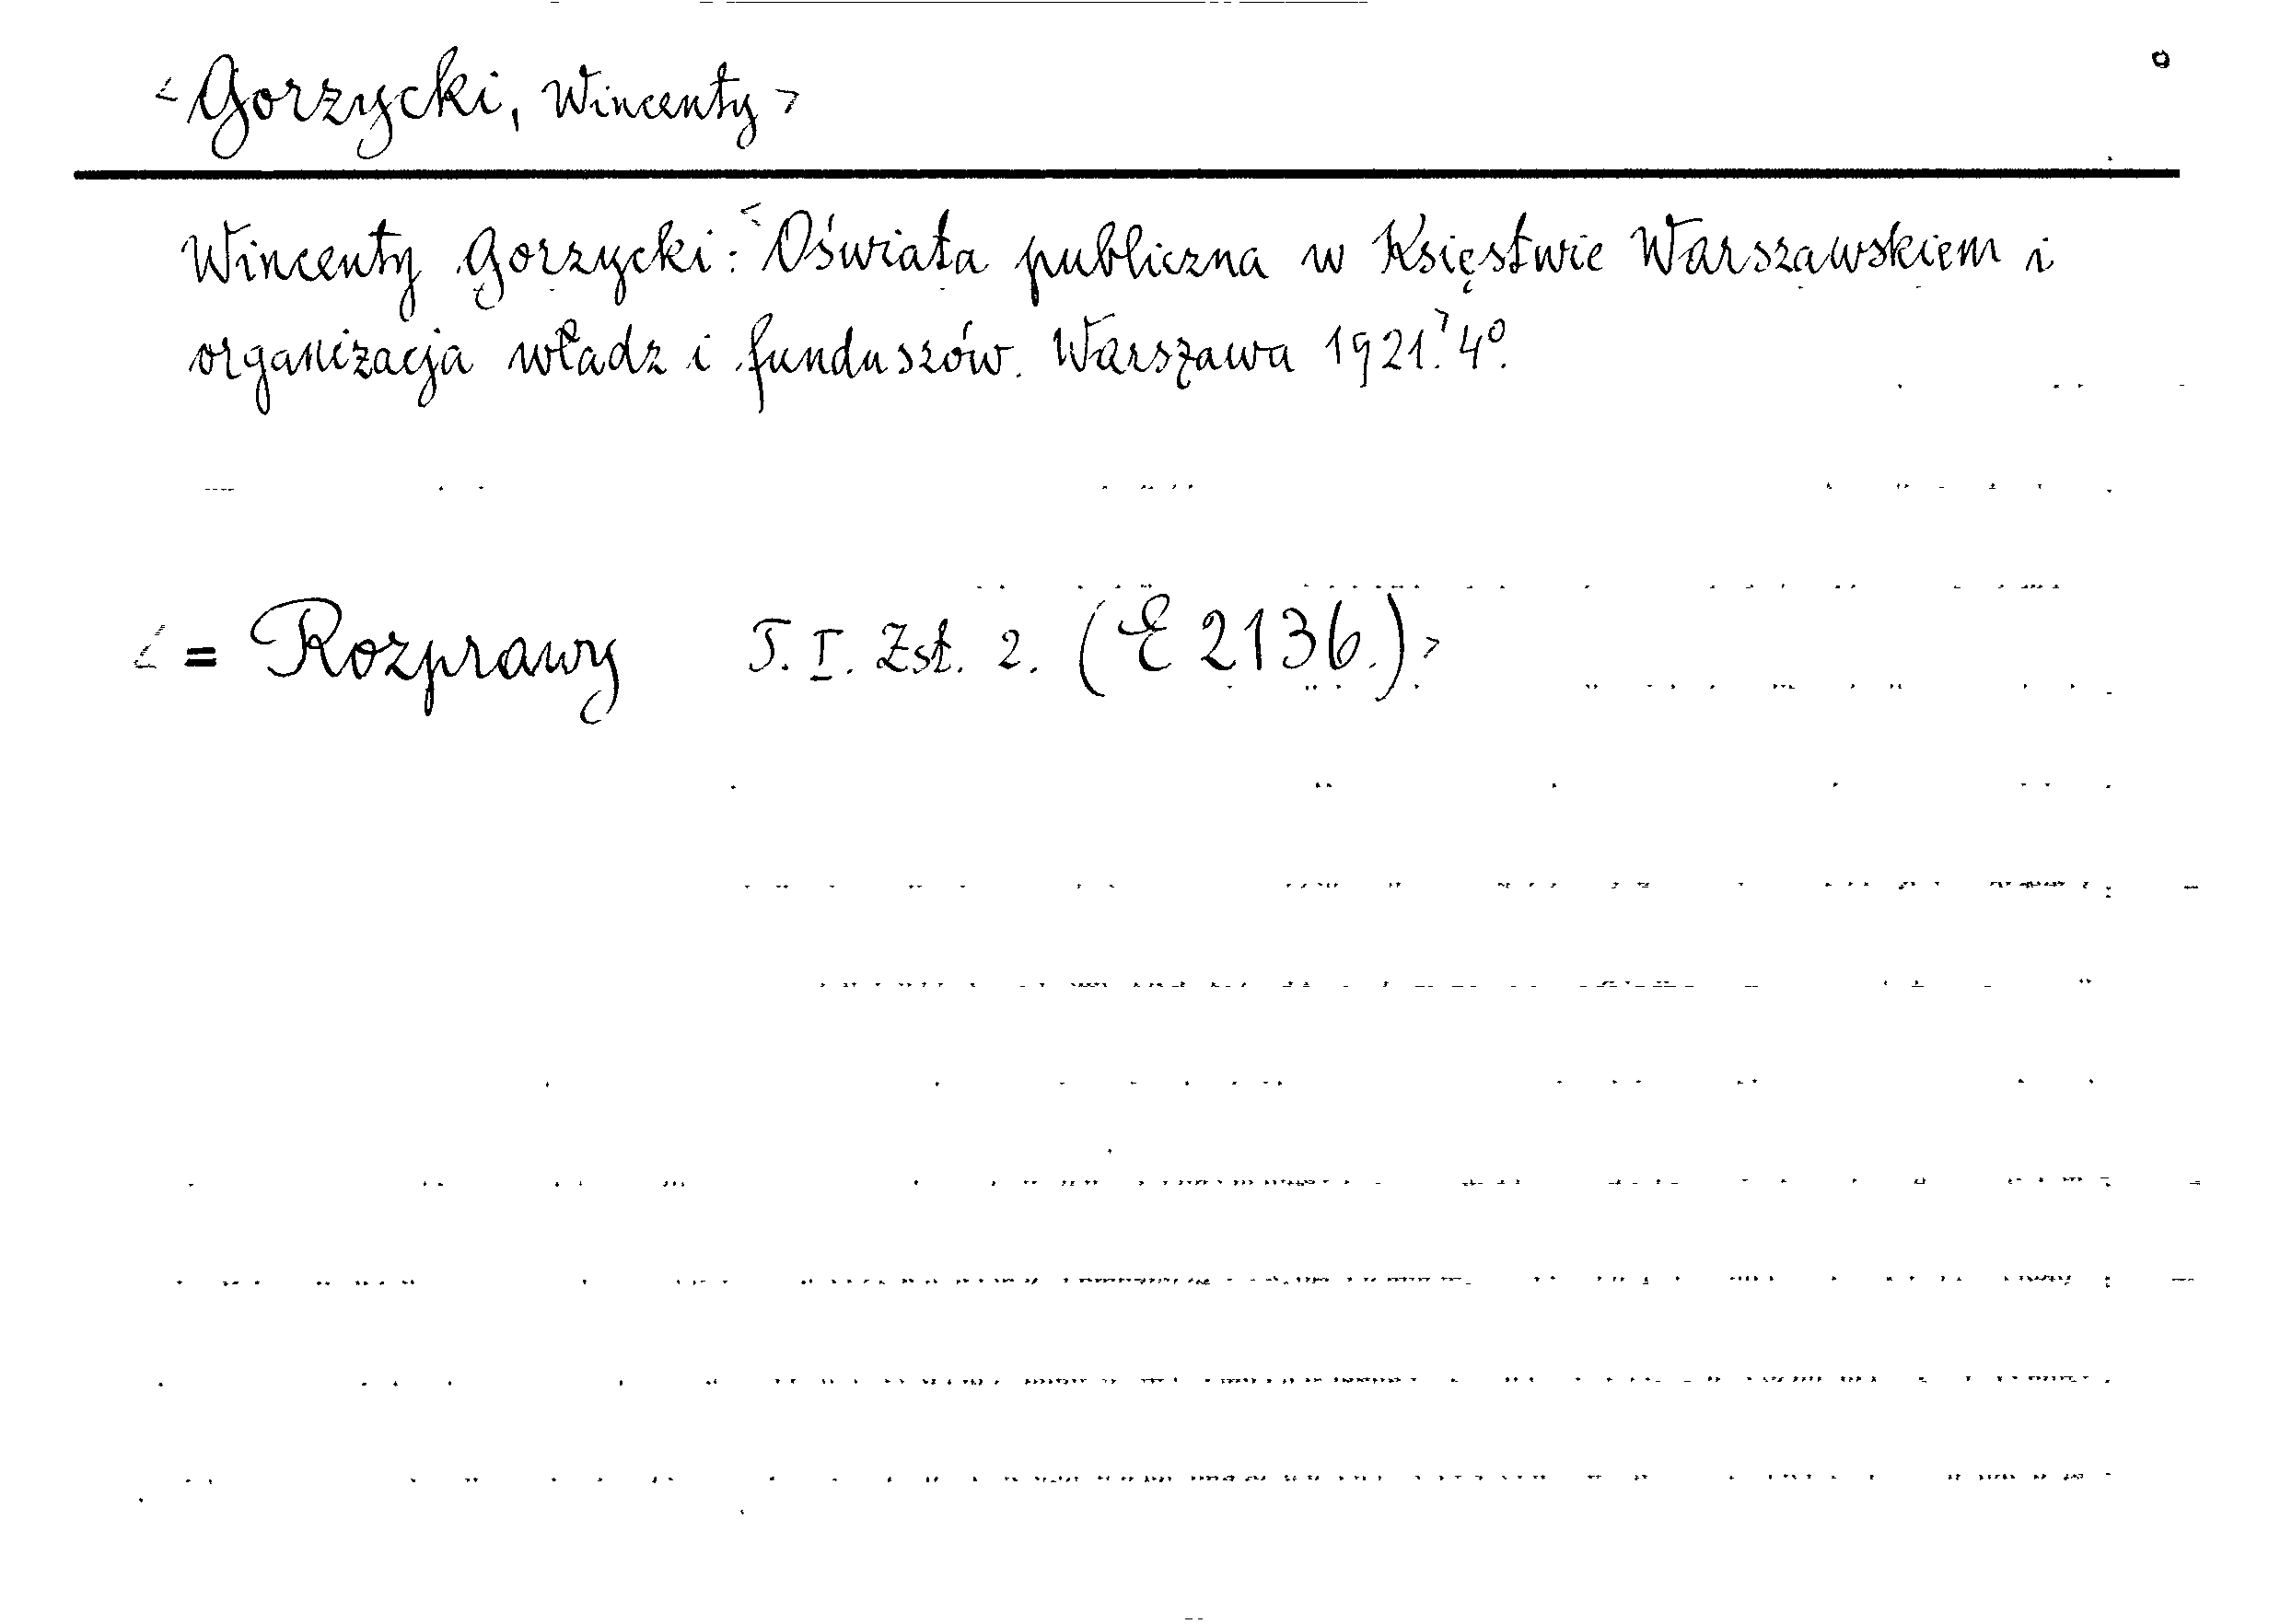 <Gorzycki, Wincenty>
Wincenty Gorzycki: <Oświata publiczna w Księstwie Warszawskiem i
organizacja władz i funduszów. Warszawa 1921.> 4º.
<= Rozprawy T. I. Zst. 2. (E 2136.)>